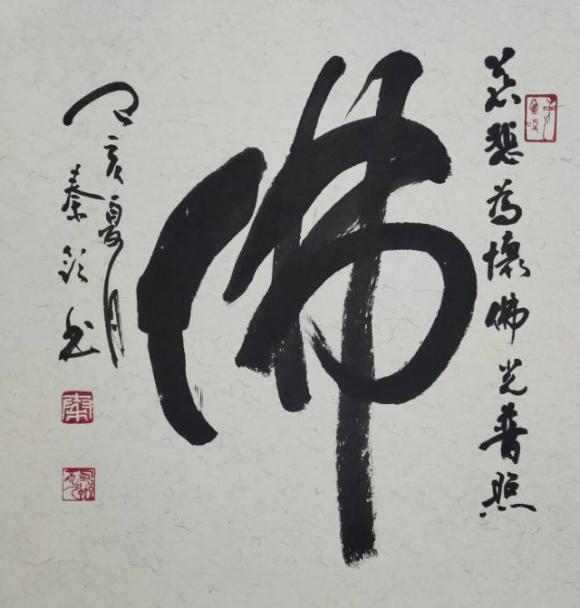 慈悲為懷佛光普照
佛
丁亥夏月
秦欽書